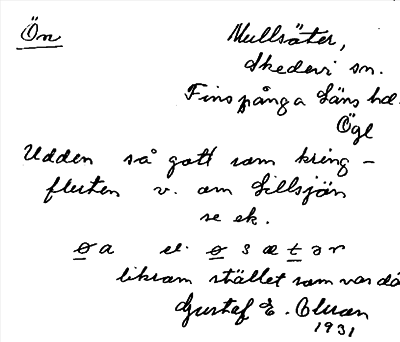 Ön
Mullsäter,
Skedevi sn.
Finspånga Läns hd.
Ögl
Udden så gott som kring-
fluten v. om Tillsjön
se ek.
ø a el. ø s æ t ə r
liksom stället som var då
Gustaf E.
1931